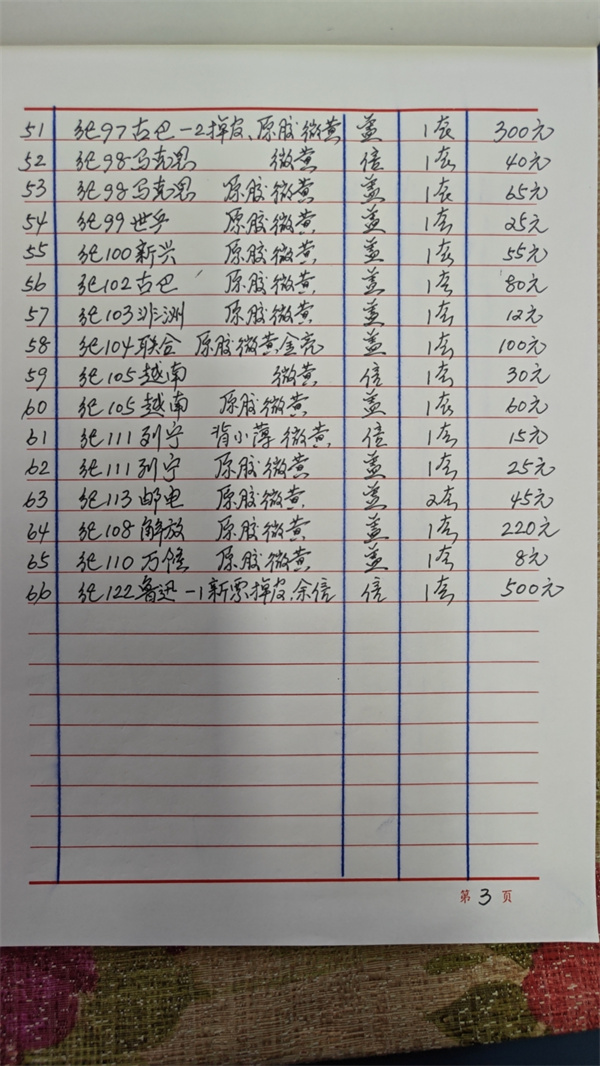 51 纪97古巴-2掉皮、原胶微黄 盖 1套 300元
52 纪98马克思 微黄 信 1套 40元
53 纪98马克思 原胶微黄 盖 1套 65元
54 纪99世乒 原胶微黄 盖 1套 25元
55 纪100新兴 原胶微黄 盖 1套 55元
56 纪102古巴 原胶微黄 盖 1套 80元
57 纪103非洲 原胶微黄 盖 1套 12元
58 纪104联合 原胶微黄金亮 盖 1套 100元
59 纪105越南 微黄 信 1套 30元
60 纪105越南 原胶微黄 盖 1套 60元
61 纪111列宁 背小薄微黄 信 1套 15元
62 纪111列宁 原胶微黄 盖 1套 25元
63 纪113邮电 原胶微黄 盖 2套 45元
64 纪108解放 原胶微黄 盖 1套 220元
65 纪110万隆 原胶微黄 盖 1套 8元
66 纪122鲁迅-1新票掉皮,余信 信 1套 500元
第 3 页